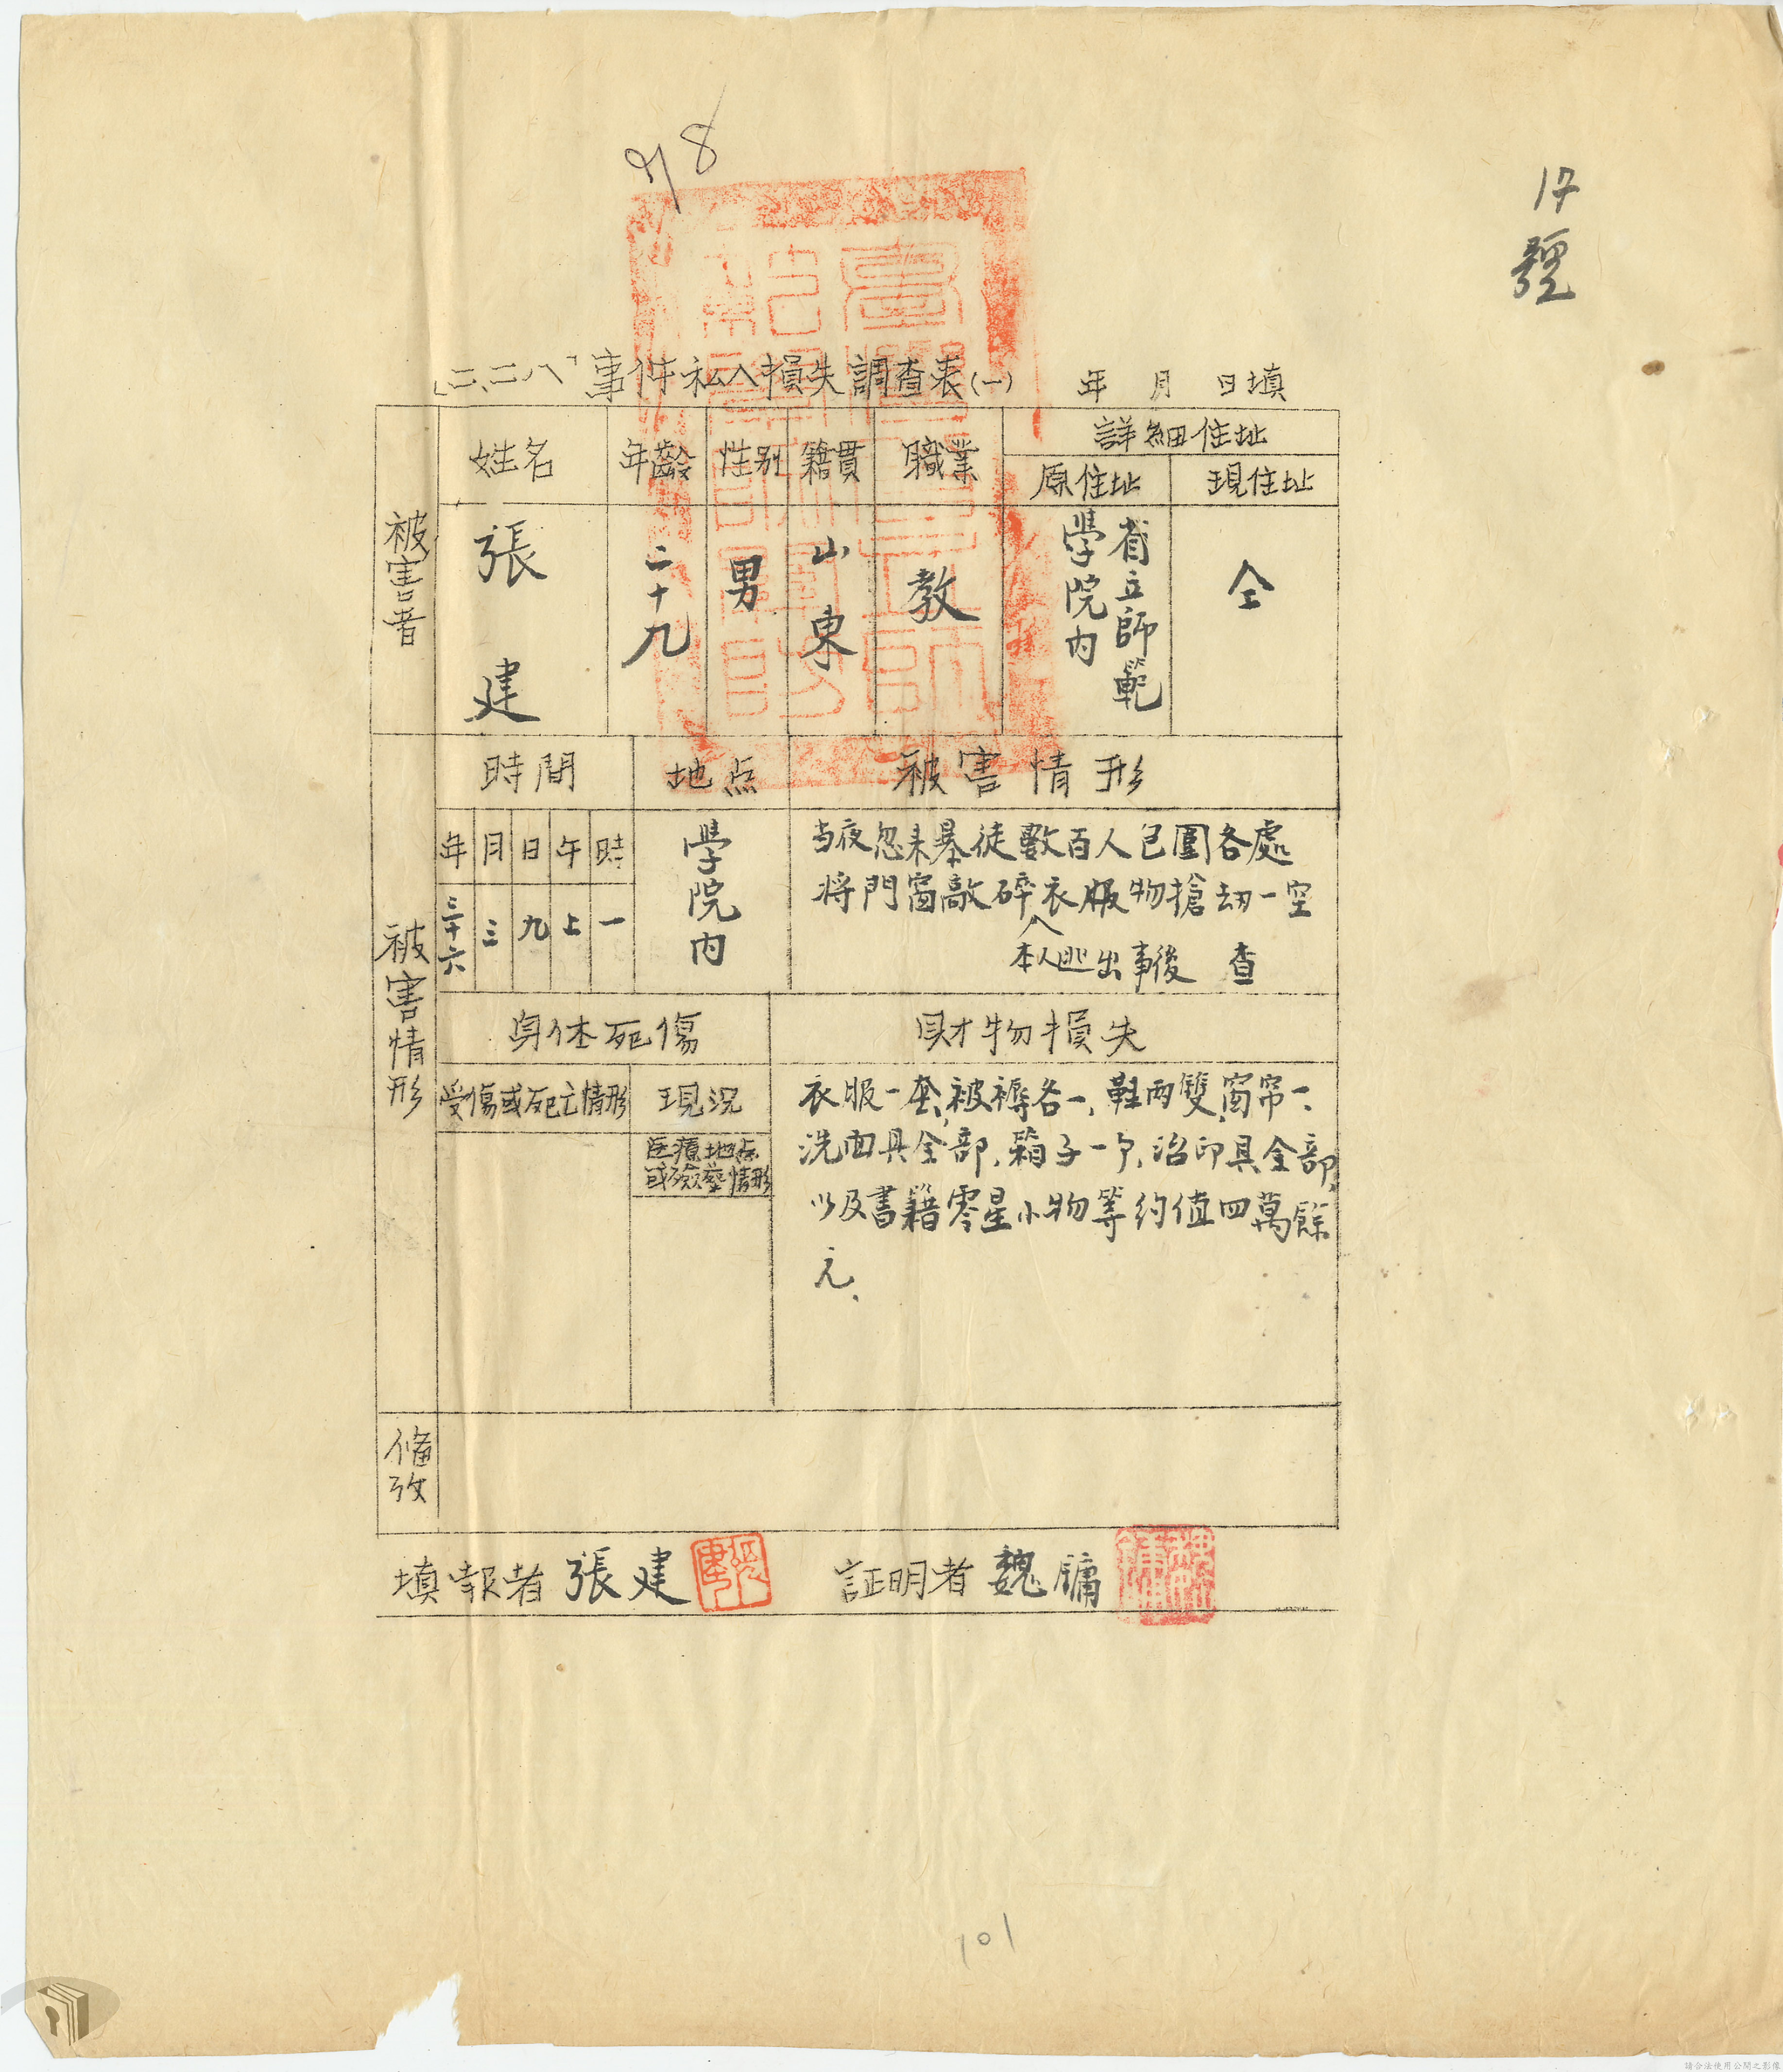 98
17
號
「二、二八」事件私人損失調查表(一) 年 月 日填
被害者
姓名
年齡
性別
籍貫
職業
詳細住址
原住址
現住址
張建
二十九
男
山東
教
省立師範
學院內
仝
被害情形
時間
地点
被害情形
年
月
日
午
時
三十六
三
九
上
一
學院內
当夜忽来暴徒數百人包圍各處
将門窗敲碎衣服物搶劫一空
本人逃出事後 查
身体死傷
財物損失
受傷或死亡情形
現況
医療地点
或殮葬情形
衣服一套、被褥各一、鞋两雙、窗帘一、
洗面具全部、箱子一个、治印具全部、
以及書籍零星小物等約值四萬餘
元、
備攷
填報者 張建 証明者 魏鏞
101
請合法使用公開之影像